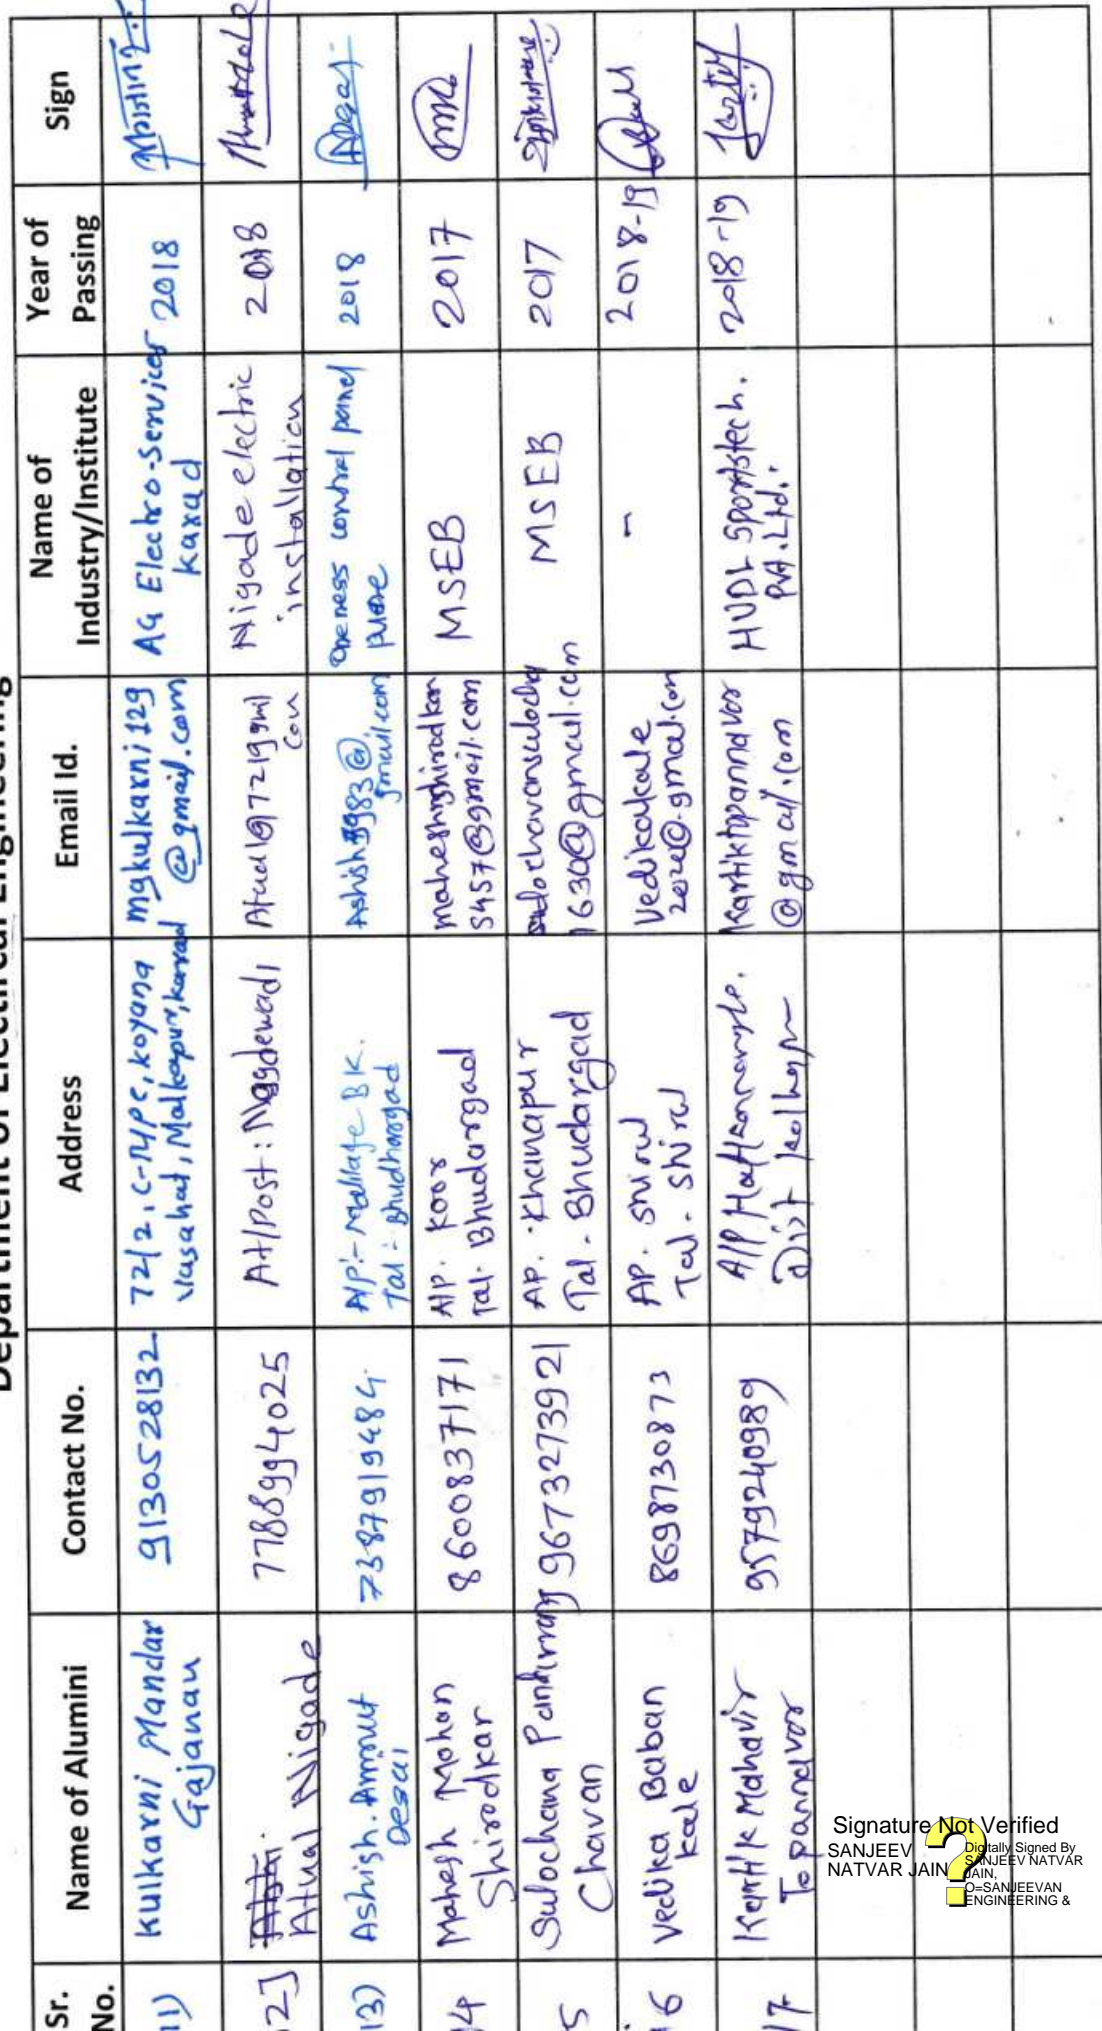 Department of Electrical Engineering
Sr. No.
Name of Alumini
Contact No.
Address
Email Id.
Name of Industry/Institute
Year of Passing
Sign
11)
Kulkarni Mandar
Gajanan
9130528132
72/2, C-type, koyana
vasahat, Malkapur, karad
mgkulkarni129
@gmail.com
AG Electro-services
Karad
2018
12]
Atual Nigade
7788994025
At/Post:
2018
Nigade electric
installation
13)
Ashish. Amrut
Desai
7387919484
A/P:- Madilage BK.
Tal:- Bhudhargad
@
gmail.com
Oneness control panel
pune
2018
14
Mahesh Mohan
Shirodkar
8600837171
A/P. Koor
Tal. Bhudargad
maheshmshirodkar
5457@gmail.com
MSEB
2017
5
Sulochana Pandurang
Chavan
9673273921
AP. Khanapur
Tal. Bhudargad
1630@gmail.com
MSEB
2017
16
Vedika Baban
Kale
8698730873
AP. Shirol
Tal. Shirol
Vedikakale
2012@gmail.com
-
2018-19
17
Kartik Mahavir
Topannavar
9579240989
A/P
Dist Kolhapur
Kartiktopannavar
@gmail.com
HUDL Sportstech.
Pvt. Ltd.
2018-19
Signature Not Verified
SANJEEV
NATVAR JAIN
Digitally Signed By
SANJEEV NATVAR
JAIN,
O=SANJEEVAN
ENGINEERING &